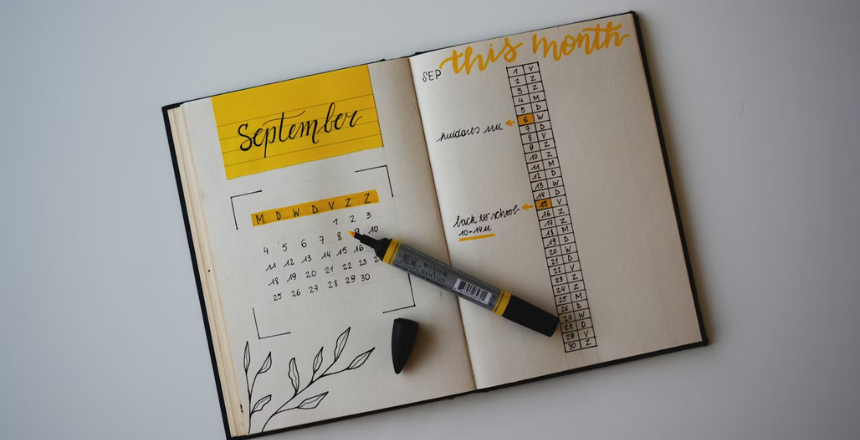 September
M D W D V Z Z
1 2 3
4 5 6 7 8 9 10
11 12 13 14 15 16
18 19 20 21 22 23
25 26 27 28 29 30
this month
SEP
1 V
2 Z
3 Z
4 M
5 D
6 W
7 D
8 V
9 Z
10 Z
11 M
12 D
13 W
14 D
15 V
16 Z
17 Z
18 M
19 D
20 W
21 D
22 V
23 Z
24 Z
25 M
26 D
27 W
28 D
29 V
30 Z
back to school